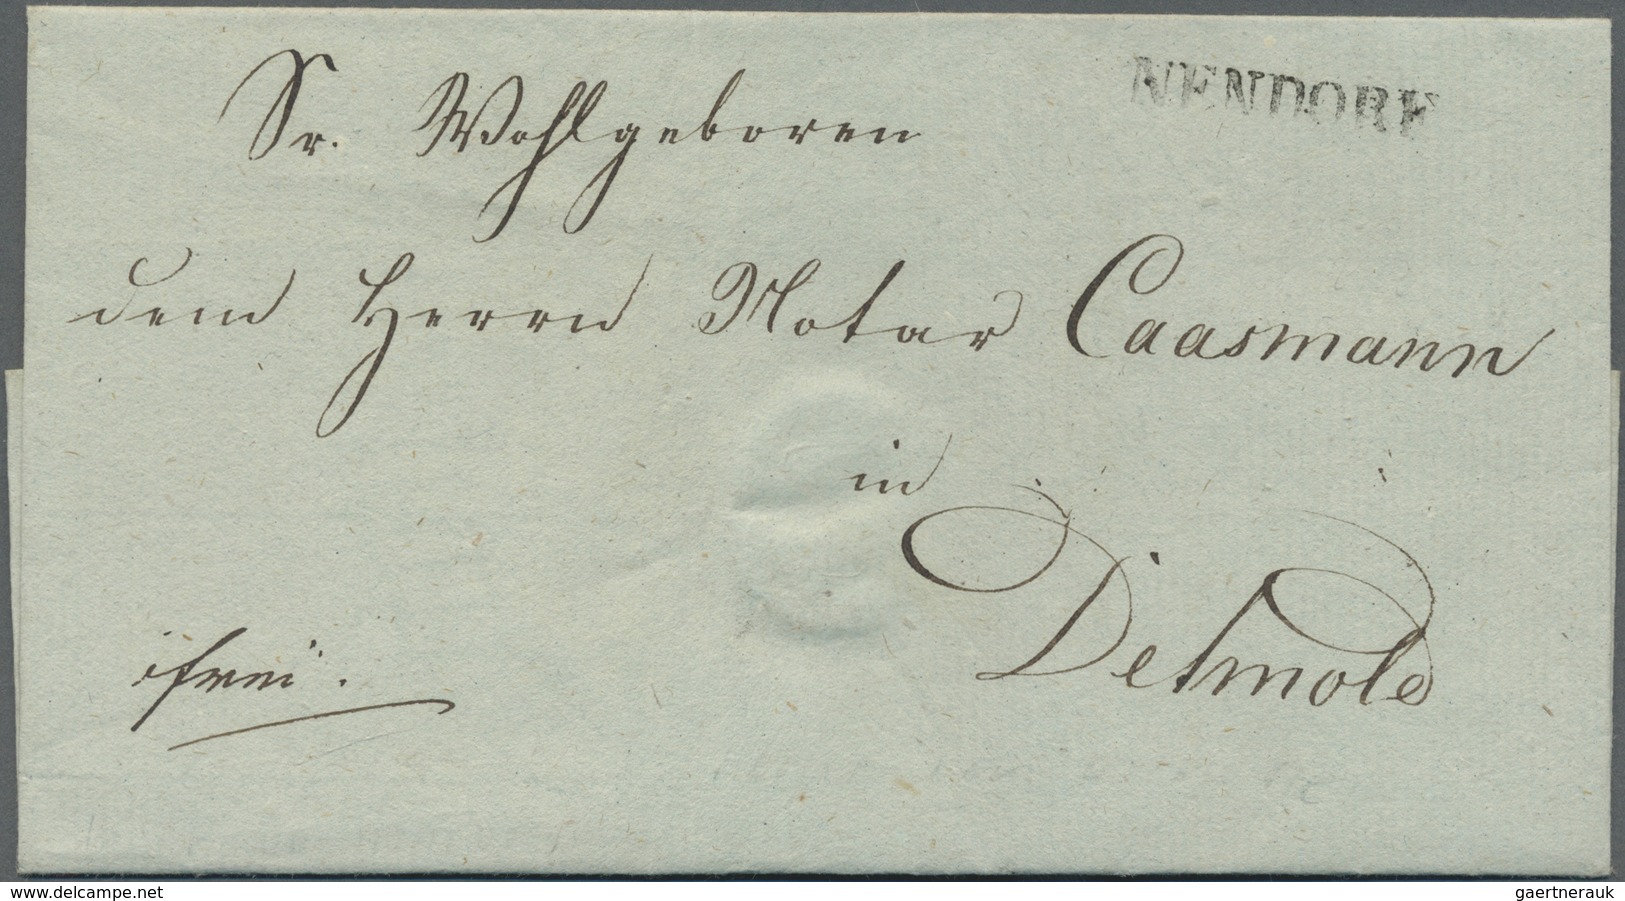 NENDORF
Sr. Wohlgeboren
dem Herrn Notar Caasmann
in
Detmold
frei.
www.delcampe.net
gaertnerauk